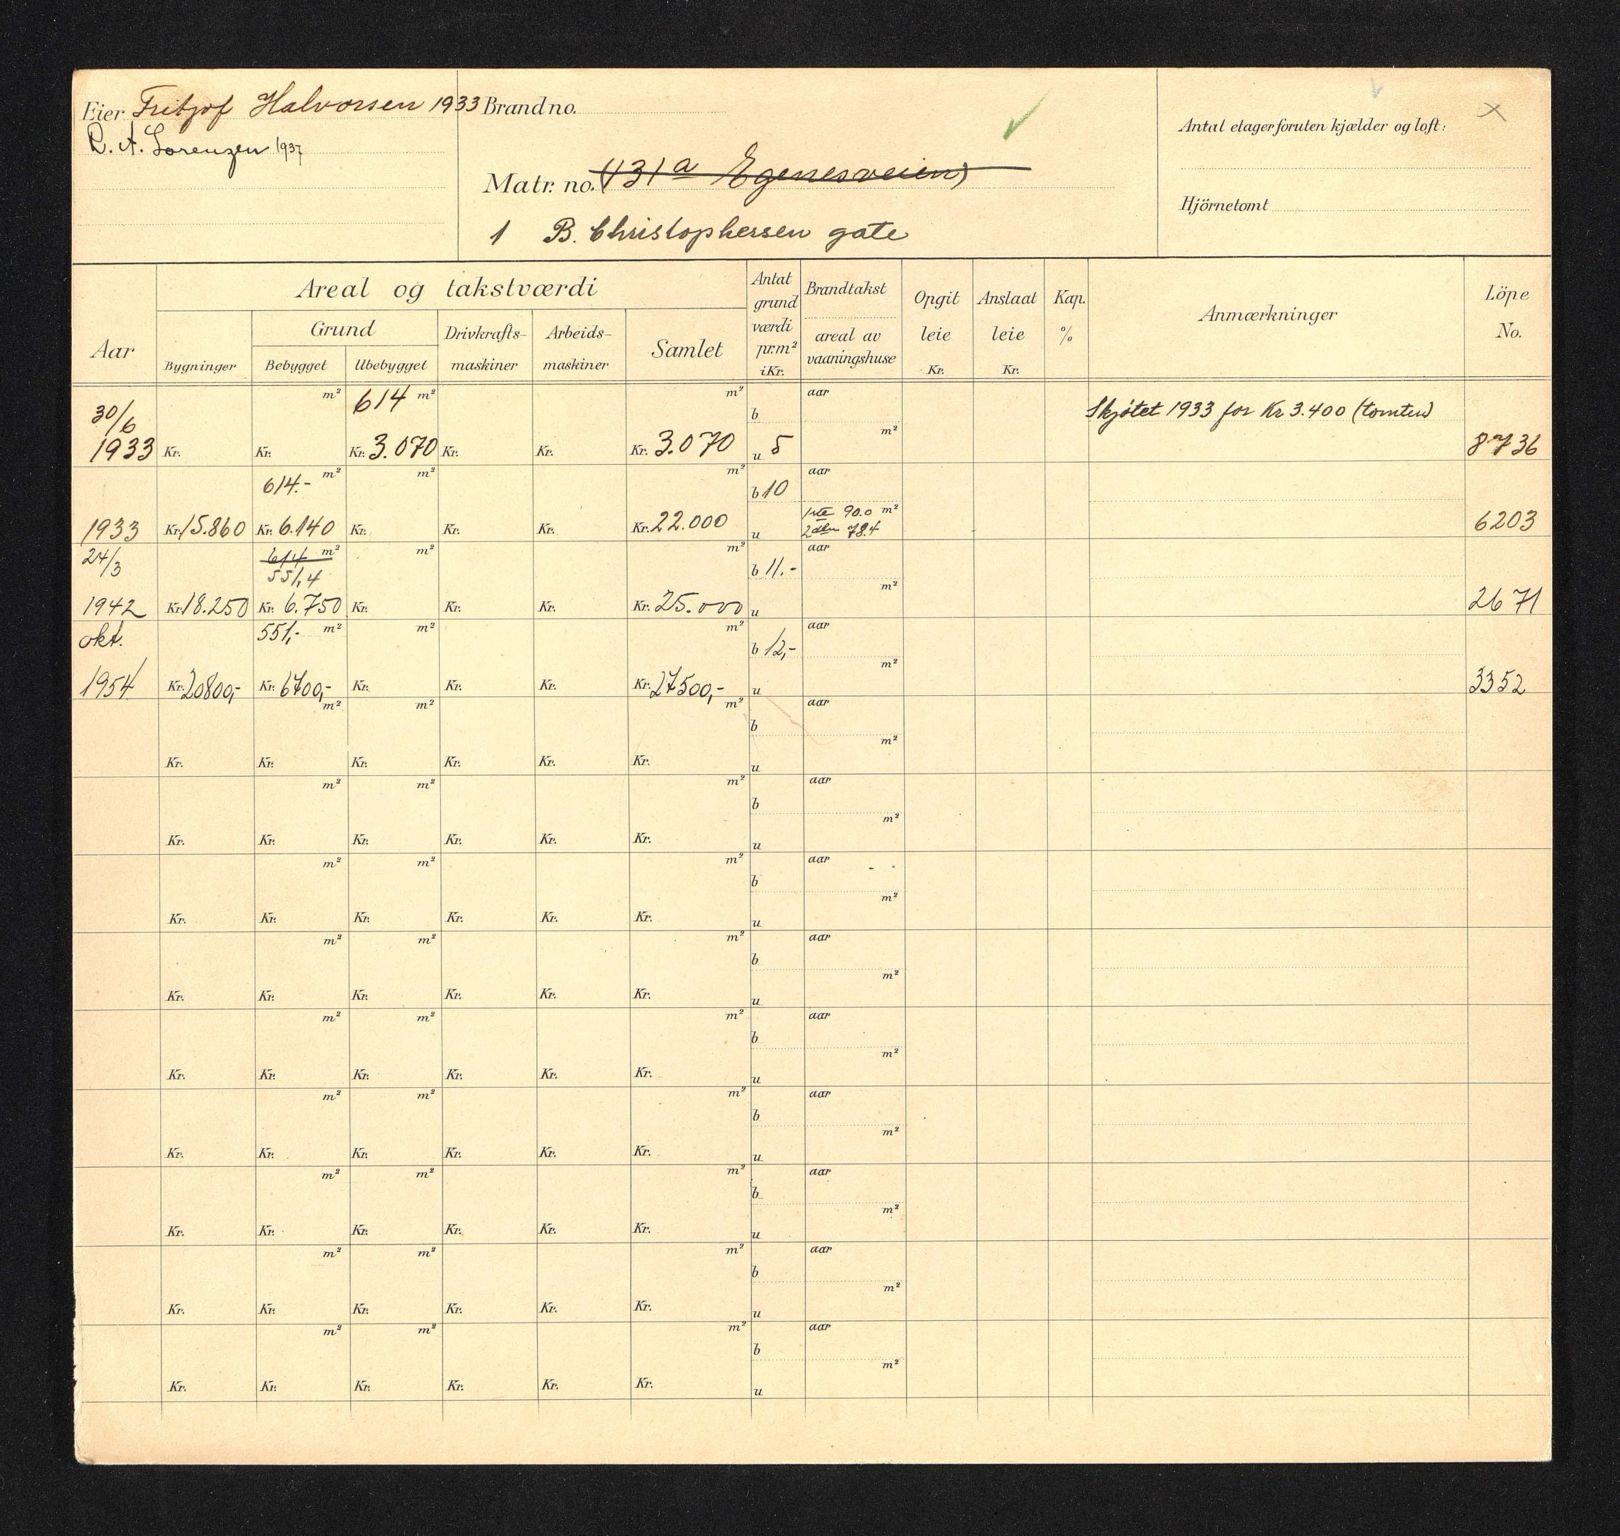 Eier. Fritjof Halvorsen 1933 Brandno.
Antal etager foruten kjælder og loft:
A. Lorenzen 1937
Matr. no. (131a Egenesveien)
Hjörnetomt
1 B. Christophersen gate
Areal og takstværdi
Grund
Aar
Bygninger
Bebygget
Ubebygget
Drivkrafts-
maskiner
Arbeids-
maskiner
Samlet
Antat
grund
værdi
pr.m²
i Kr.
Brandtakst
areal av
vaaningshuse
Opgit
leie
Kr.
Anslaat
leie
Kr.
Kap.
%
Anmærkninger
Löpe
No.
m² 614 m² m² aar
30/6 b Skjøtet 1933 for Kr 3.400 (tomten)
m²
1933 Kr. Kr. Kr. 3.070 Kr. Kr. Kr. 3.070 u 5 8736
614.- m² m² m² aar
b 10
1ste 90.0 m²
1933 Kr. 15.860 Kr. 6.140 Kr. Kr. Kr. Kr. 22.000 u 2den 78.4 6203
24/3 614 m² m² m² aar
551,4 b 11.-
m²
1942 Kr. 18.250 Kr. 6.750 Kr. Kr. Kr. Kr. 25.000 u 2671
okt. 551,- m² m² m² aar
b 12,-
m²
1954 Kr. 20800,- Kr. 6700,- Kr. Kr. Kr. Kr. 27500,- u 3352
m² m² m² aar
b
m²
Kr. Kr. Kr. Kr. Kr. Kr. u
m² m² m² aar
b
m²
Kr. Kr. Kr. Kr. Kr. Kr. u
m² m² m² aar
b
m²
Kr. Kr. Kr. Kr. Kr. Kr. u
m² m² m² aar
b
m²
Kr. Kr. Kr. Kr. Kr. Kr. u
m² m² m² aar
b
m²
Kr. Kr. Kr. Kr. Kr. Kr. u
m² m² m² aar
b
m²
Kr. Kr. Kr. Kr. Kr. Kr. u
m² m² m² aar
b
m²
Kr. Kr. Kr. Kr. Kr. Kr. u
m² m² m² aar
b
m²
Kr. Kr. Kr. Kr. Kr. Kr. u
m² m² m² aar
b
m²
Kr. Kr. Kr. Kr. Kr. Kr. u